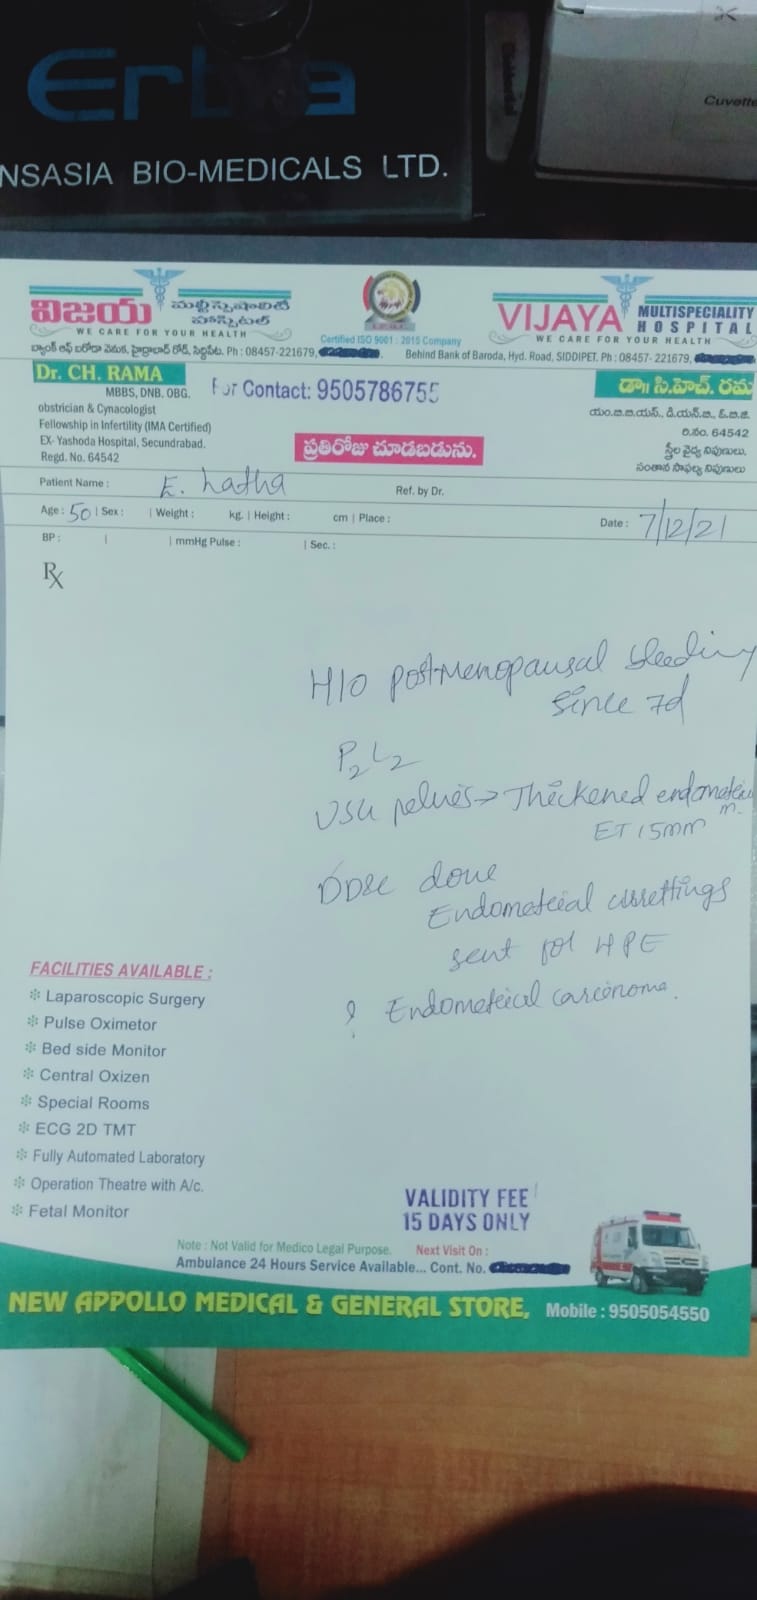 Erba
NSASIA BIO-MEDICALS LTD.
Cuvette
విజయ మల్టీస్పెషాలిటీ హాస్పిటల్
WE CARE FOR YOUR HEALTH
బ్యాంక్ ఆఫ్ బరోడా వెనుక, హైద్రాబాద్ రోడ్, సిద్దిపేట. Ph : 08457-221679,
Certified ISO 9001 : 2015 Company
VIJAYA MULTISPECIALITY HOSPITAL
WE CARE FOR YOUR HEALTH
Behind Bank of Baroda, Hyd. Road, SIDDIPET. Ph : 08457- 221679,
Dr. CH. RAMA
MBBS, DNB. OBG.
obstrician & Cynacologist
Fellowship in Infertility (IMA Certified)
EX- Yashoda Hospital, Secundrabad.
Regd. No. 64542
For Contact: 9505786755
ప్రతిరోజు చూడబడును.
డా॥ సి.హెచ్. రమ
యం.బి.బి.యస్., డి.యన్.బి., ఓ.బి.జి.
రి.నం. 64542
స్త్రీల వైద్య నిపుణులు,
సంతాన సాఫల్య నిపుణులు
Patient Name : E. Latha Ref. by Dr.
Age : 50 | Sex : | Weight : kg. | Height : cm | Place : Date : 7/12/21
BP : | | mmHg Pulse : | Sec. :
Rx
H/O postmenopausal bleeding
since 7d
P2L2
USG pelvis → Thickened endometriu
m.
ET 15mm
DD&C done
Endometrial curettings
sent for HPE
? Endometrial carcinoma.
FACILITIES AVAILABLE :
❇ Laparoscopic Surgery
❇ Pulse Oximetor
❇ Bed side Monitor
❇ Central Oxizen
❇ Special Rooms
❇ ECG 2D TMT
❇ Fully Automated Laboratory
❇ Operation Theatre with A/c.
❇ Fetal Monitor
VALIDITY FEE
15 DAYS ONLY
Note : Not Valid for Medico Legal Purpose. Next Visit On :
Ambulance 24 Hours Service Available... Cont. No.
NEW APPOLLO MEDICAL & GENERAL STORE, Mobile : 9505054550